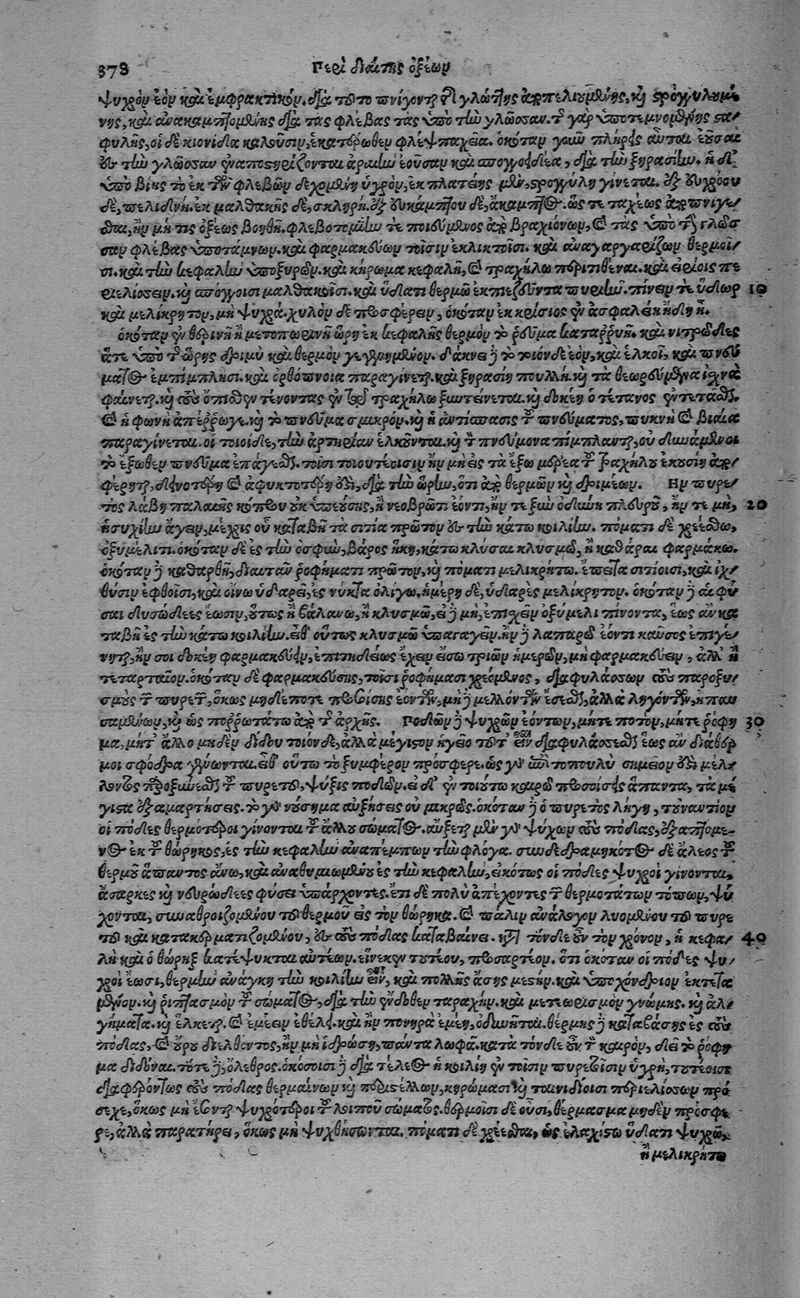 378 Περὶ διαίτης ὀξέων
ψυχρὸν ἐὸν καὶ ἐμφρακτικόν. διὰ τοῦτο πνίγονται τῆς γλώττης ἀποπελιουμένης, καὶ στρογγυλουμέ/
νης, καὶ ἀνακαμπτομένης διὰ τὰς φλέβας τὰς ὑπὸ τὴν γλῶσσαν. τῆς γὰρ ὑποτεμνομένης στα/
φυλῆς, οἱ δὲ κιονίδα καλοῦσιν, ἑκατέρωθεν φλὲψ παχεῖα. ὁκόταν γοῦν πλήρεις αὗται ἐοῦσαι
ἐς τὴν γλῶσσαν ἐναποστηρίζονται ἀραιὴν ἐοῦσαν καὶ σπογγοειδέα, διὰ τὴν ξηρασίην. ἡ δ'
ὑπὸ βίης τὸ ἐκ τῶν φλεβῶν δεχομένη ὑγρὸν, ἐκ πλατείης μὲν, στρογγύλη γίνεται. ἐξ εὐχρόου
δὲ, πελιδνή. ἐκ μαλθακῆς δὲ, σκληρή. ἐξ εὐκάμπτου δὲ, ἄκαμπτος. ὥστε ταχέως ἀποπνίγε/
σθαι, ἢν μή τις ὀξέως βοηθῇ, φλεβοτομίην τε ποιεύμενος ἀπὸ βραχιόνων, καὶ τὰς ὑπὸ τὴν γλῶσ/
σαν φλέβας ὑποτάμνων. καὶ φαρμακεύων τοῖσιν ἐκλικτοῖσι. καὶ ἀναγαργαρίζων θερμοῖ/
σι. καὶ τὴν κεφαλὴν ὑποξυρῶν. καὶ κήρωμα κεφαλῇ, καὶ τραχήλῳ περιτιθέναι. καὶ εἰρίοις πε
ριελίσσειν. καὶ σπόγγοισι μαλθακοῖσι. καὶ ὕδατι θερμῷ ἐκπιεζεῦντα πυριῇν. πίνειν τε ὕδωρ 10
καὶ μελίκρητον, μὴ ψυχρά. χυλὸν δὲ προσφέρειν, ὁκόταν ἐκ κρίσιος ἐν ἀσφαλείῃ ἤδη ᾖ.
ὁκόταν ἐν θερινῇ ἢ μετοπωρινῇ ὥρῃ ἐκ κεφαλῆς θερμὸν τὸ ῥεῦμα καταρρυῇ. καὶ νιτρῶδες
ἅτε ὑπὸ τῆς ὥρης δριμὺ καὶ θερμὸν γεγενημένον. δάκνει δὲ τοιόνδε ἐὸν, καὶ ἑλκοῖ, καὶ πνεύ
ματος ἐμπίμπλησι. καὶ ὀρθόπνοια παραγίνεται. καὶ ξηρασίη πουλλή. καὶ τὰ θεωρεύμενα ἰσχνὰ
φαίνεται. καὶ τοὺς ὄπισθεν τένοντας ἐν τῷ τραχήλῳ ξυντείνεται. καὶ δοκέῃ ὁ τέτανος ἐντετάσθαι.
καὶ ἡ φωνὴ ἀπέρρωγε. καὶ τὸ πνεῦμα σμικρόν. καὶ ἡ ἀντίσπασις τοῦ πνεύματος, πυκνὴ καὶ βιαία
παραγίνεται. οἱ τοιοίδε, τὴν ἀρτηρίαν ἑλκοῦνται. καὶ τὸν πνεύμονα πίμπλανται, οὐ δυνάμενοι
τὸ ἔξωθεν πνεῦμα ἐπάγεσθαι. τοῖσι τοιουτέοισιν ἢν μὴ εἰς τὰ ἔξω μέρεα τοῦ τραχήλου ἑκουσίη ἀπο/
φέρηται, δεινοτέρη καὶ ἀφυκτοτέρη ἐστὶ, διὰ τὴν ὥρην, ὅτι ἀπὸ θερμῶν καὶ δριμέων. Ἢν πυρε/
τὸς λάβῃ παλαιῆς κόπρου ὑπεούσης, ἢ νεοβρῶτι ἐόντι, ἤν τε ξὺν ὀδύνῃ πλευροῦ, ἤν τε μὴ, 20
ἡσυχίην ἄγειν, μέχρις οὗ καταβῇ τὰ σιτία πρῶτον ἐς τὴν κάτω κοιλίην. πόματι δὲ χρέεσθω,
ὀξυμέλιτι. ὁκόταν δὲ ἐς τὴν ὀσφὺν, βάρος ἥκῃ, κάτω κλύσαι κλυσμῷ, ἢ καθῆραι φαρμάκῳ.
ὁκόταν δὲ καθαρθῇ, διαιτᾶν ῥοφήματι πρῶτον, καὶ πόματι μελικρήτῳ. ἔπειτα σιτίοισι, καὶ ἰχ/
θύσιν ἑφθοῖσι, καὶ οἴνῳ ὑδαρεῖ, ἐς νύκτα ὀλίγῳ. ἡμέρης δὲ, ὑδαρὲς μελίκρητον. ὁκόταν δὲ αἱ φύ
σαι δυσώδεες ἔωσιν, οὕτως ἢ βαλάνῳ, ἢ κλυσμῷ, εἰ δὲ μὴ, ἐπέχειν ὀξύμελι πίνοντα, ἕως ἂν κα
ταβῇ ἐς τὴν κάτω κοιλίην. εἶθ' οὕτως κλυσμῷ ὑπαγαγεῖν. ἢν δὲ λαπαρῷ ἐόντι καῦσος ἐπιγέ/
νηται, ἤν σοι δοκέῃ φαρμακεῦσαι, ἐπιτηδείως ἔχειν εἴσω τριῶν ἡμερῶν, μὴ φαρμακεύειν, ἀλλ' ἢ
τεταρταῖον. ὁκόταν δὲ φαρμακεύσῃς, τοῖσι ῥοφήμασι χρεόμενος, διαφυλάσσων τοὺς παροξυ/
σμοὺς τοῦ πυρετοῦ, ὅκως μηδέποτε προσοίσῃς ἐόντων, μὴ δὲ μελλόντων ἔσεσθαι, ἀλλὰ ληγόντων, ἢ παυ
σαμένων, καὶ ὡς πορρωτάτω ἀπὸ τῆς ἀρχῆς. Ποδῶν δὲ ψυχρῶν ἐόντων, μήτε ποτὸν, μήτε ῥόφη 30
μα, μήτ' ἄλλο μηδὲν δίδου τοιόνδε, ἀλλὰ μέγιστον ἡγέο τοῦτ' εἶναι διαφυλάσσεσθαι ἕως ἂν διάθερ
μοι σφόδρα γένωνται. εἶθ' οὕτω τὸ ξυμφέρον πρόσφερε. ὡς γὰρ ἐπιτοπουλὺ σημεῖον ἐστὶ μέλ/
λοντος παροξύνεσθαι τοῦ πυρετοῦ, ψύξις ποδῶν. εἰ δ' ἐν τούτῳ καιρῷ προσοίσεις ἅπαντα, τὰ μέ
γιστα ἐξαμαρτήσεις. τὸ γὰρ νούσημα αὐξήσεις οὐ μικρῶς. ὁκόταν δὲ ὁ πυρετὸς λήγῃ, τοὐναντίον
οἱ πόδες θερμότεροι γίνονται τοῦ ἄλλου σώματος. αὔξεται μὲν γὰρ ψύχων τοὺς πόδας, ἐξαπτόμε/
νος ἐκ τοῦ θώρηκος, ἐς τὴν κεφαλὴν ἀναπέμπων τὴν φλόγα. συνδεδραμηκότος δὲ ἁλέος τοῦ
θερμοῦ ἅπαντος ἄνω, καὶ ἀναθυμιωμένου ἐς τὴν κεφαλὴν, εἰκότως οἱ πόδες ψυχροὶ γίνονται,
ἄσαρκες καὶ νευρώδεες φύσει ὑπάρχοντες. ἔτι δὲ πολὺ ἀπέχοντες τῶν θερμοτάτων τόπων, ψύ
χονται, συναθροιζομένου τοῦ θερμοῦ εἰς τὸν θώρηκα. καὶ πάλιν ἀνάλογον λυομένου τοῦ πυρε
τοῦ καὶ κατακερματιζομένου, ἐς τοὺς πόδας καταβαίνει. κατὰ τόνδε ἓν τὸν χρόνον, ἡ κεφα/ 40
λὴ καὶ ὁ θώρηξ κατέψυκται αὐτέων. εἵνεκεν τούτου, προσαρτέον. ὅτι ὁκόταν οἱ πόδες ψυ/
χροὶ ἔωσι, θερμὴν ἀνάγκη τὴν κοιλίην εἶναι, καὶ πολλῆς ἄσης μεστήν. καὶ ὑποχόνδριον ἐκτετα
μένον. καὶ ῥιπτασμὸν τοῦ σώματος, διὰ τὴν ἔνδοθεν ταραχήν. καὶ μετεωρισμὸν γνώμης. καὶ ἀλ/
γήματα. καὶ ἕλκεται. καὶ ἐμέειν ἐθέλει. καὶ ἢν πονηρὰ ἐμέῃ, ὀδυνῆται. θέρμης δὲ καταβάσης ἐς τοὺς
πόδας, καὶ οὔρου διελθόντος, ἢν μὴ ἱδρώσῃ, πάντα λωφᾷ. κατὰ τόνδε ἓν τὸν καιρὸν, δεῖ τὸ ῥόφη
μα διδόναι. τότε δὲ, ὄλεθρος. ὁκόσοισι δὲ διὰ τέλεος ἡ κοιλίη ἐν τοῖσιν πυρετοῖσιν ὑγρὴ, τούτεοισι
διαφερόντως τοὺς πόδας θερμαίνων καὶ περιστέλλων, κηρώμασι καὶ ταινιδίοισι περιελίσσων πρό
σεχε, ὅκως μὴ ἔσονται ψυχρότεροι τοῦ λοιποῦ σώματος. θερμοῖσι δὲ οὖσι, θέρμασμα μηδὲν πρόσφε
ρε, ἀλλὰ παρατήρει, ὅκως μὴ ψυχθήσωνται. πόματι δὲ χρέεσθαι, ὡς ἐλαχίστῳ ὕδατι ψυχρῷ,
ἢ μελικρήτῳ